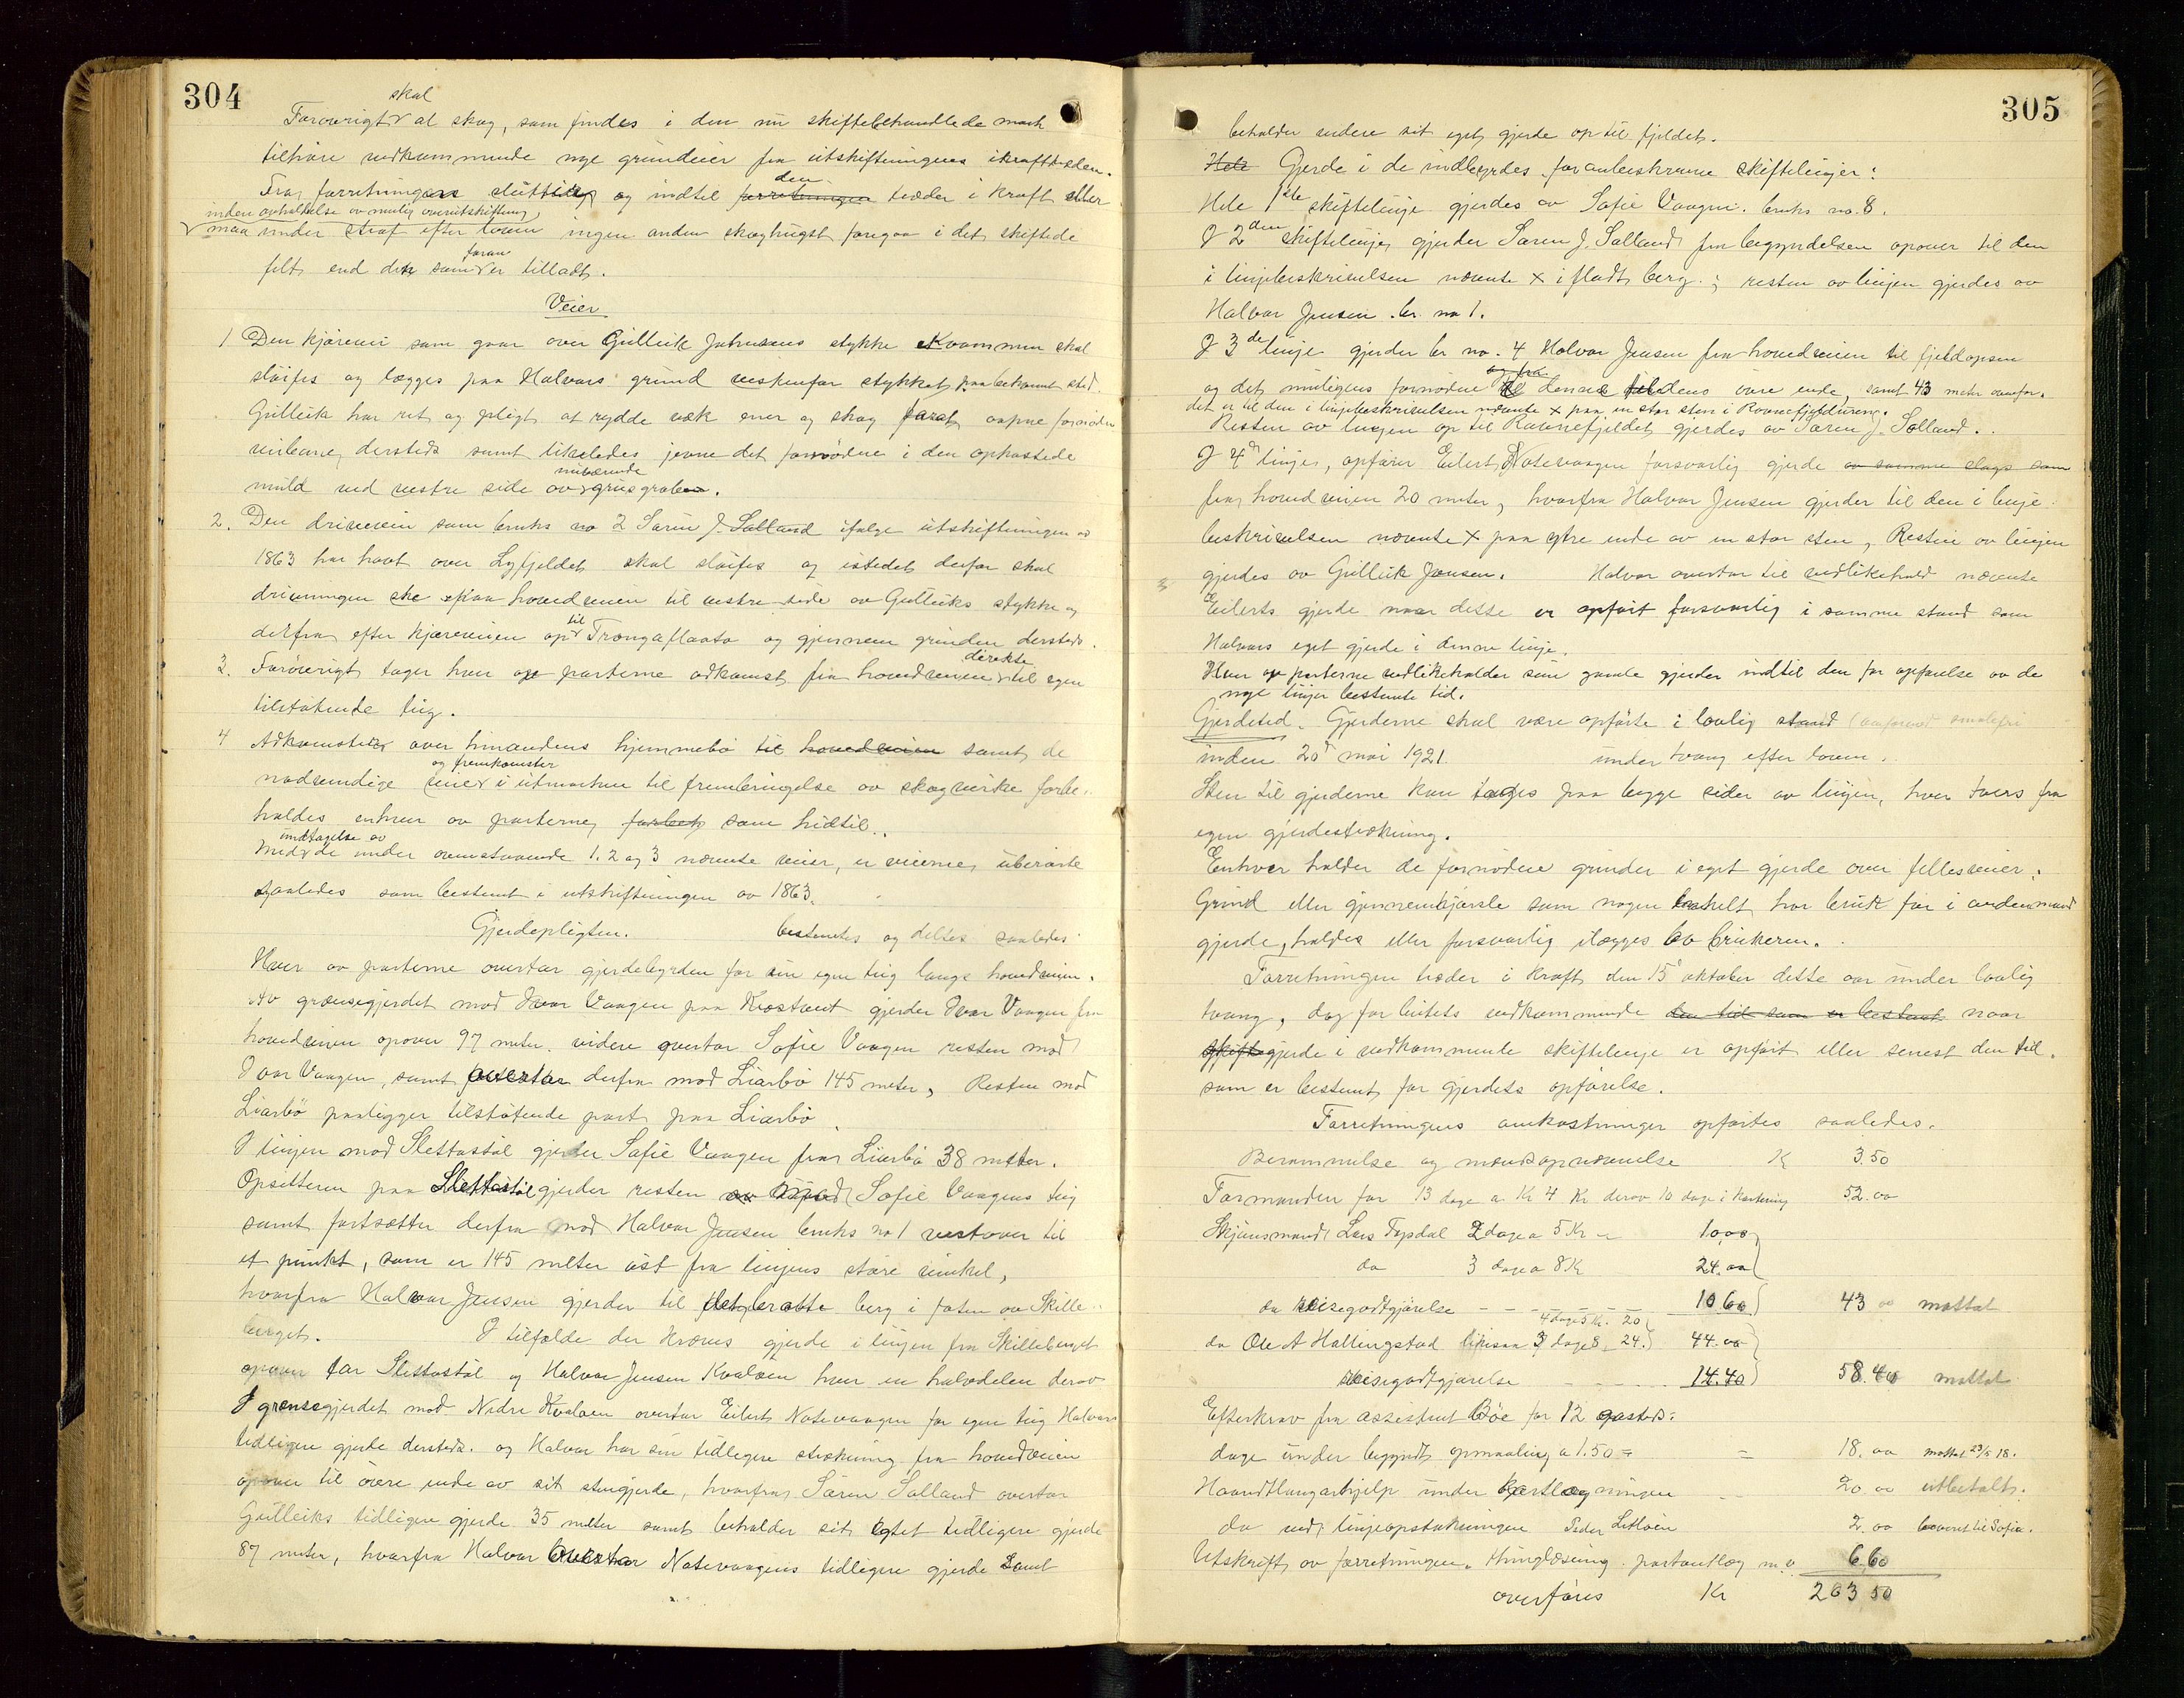 304
skal
Forøvrigt al skog, som findes i den nu skiftebehandlede mark
tilhøre vedkommende nye grundeier fra utskiftningens ikrafttræden.
Fra forretningens slutning og indtil den forretningen træder i kraft eller
inden avholdelse av mulig overutskiftning
maa under straf efter loven ingen anden skoghugst foregaa i det skiftede
felt end den som foran er tilladt.
Veier
1 Den kjørevei som gaar over Gulleik Johnsens stykke Kvammen skal
sløifes og lægges paa Halvars grund vestenfor stykket paa bekvemt sted.
Gulleik har ret og pligt at rydde væk ener og skog samt aapne fornøden
veibane dersteds samt likeledes jevne det fornødne i den opkastede
muld ved vestre side av nuværende grusgraben.
2. Den drivevei som bruks no 2 Søren J. Solland ifølge utskiftningen av
1863 har havt over Lyfjeldet skal sløifes og istedet derfor skal
drivningen ske paa hovedveien til vestre side av Gulleiks stykke og
derfra efter kjøreveien op til Trongaflaata og gjennem grinden dersteds.
3. Forøvrigt tager hver av parterne adkomst fra hovedveien direkte til egen
tilstøtende teig.
4 Adkomsten over hinandens hjemmebø til hovedveien samt de
nødvendige veier og fremkomster i utmarken til frembringelse av skogvirke forbe-
holdes enhver av parterne forbeh som hidtil.
Med undtagelse av de under ovenstaaende 1. 2 og 3 nævnte veier, er veierne uberørte
saaledes som bestemt i utskiftningen av 1863.
Gjerdepligten. bestemtes og deltes saaledes
Hver av parterne overtar gjerdebyrden for sin egen teig langs hovedveien.
Av grænsegjerdet mod Ivar Vaagen paa Kvostveit gjerder Ivar Vaagen fra
hovedveien opover 97 meter. videre overtar Sofie Vaagen resten mod
Ivar Vaagen, samt overtar derfra mod Liarbø 145 meter, Resten mod
Liarbø paaligger tilstøtende part paa Liarbø
I linjen mod Slettastøl gjerder Sofie Vaagen fra Liarbø 38 meter.
Opsitteren paa Slettastøl gjerder resten av mod Sofie Vaagens teig
samt fortsætter derfra mod Halvar Jensen bruks no 1 vestover til
et punkt, som er 145 meter øst fra linjens større vinkel,
hvorfra Halvar Jensen gjerder til det bratte berg i foten av Skille-
berget. I tilfælde der kræves gjerde i linjen fra Skilleberget
opover tar Slettastøl og Halvar Jensen Kvaløen hver en halvdelen derav
I grænsegjerdet mod Nedre Kvaløen overtar Eilert Notevaagen for egen teig Halvars
tidligere gjerde dersteds. og Halvar har sin tidligere strækning fra hovedveien
opover til øvre ende av sit stengjerde, hvorfra Søren Solland overtar
Gulleiks tidligere gjerde 35 meter samt beholder sit eget tidligere gjerde
87 meter, hvorfra Halvar overtar Notevaagens tidligere gjerde samt
305
beholder videre sit eget gjerde op til fjeldet.
Hele Gjerde i de indbyrdes foranbeskrevne skiftelinjer:
Hele 1ste skiftelinje gjerdes av Sofie Vaagen. bruks no. 8.
I 2den skiftelinje gjerder Søren J. Solland fra begyndelsen opover til den
i linjebeskrivelsen nævnte x i fladt berg.; resten av linjen gjerdes av
Halvar Jensen br. no 1.
I 3de linje gjerder br no. 4 Halvar Jensen fra hovedveien til fjeldopsen
og det muligens fornødne og fra dennes øvre ende, samt 43 meter ovenfor.
det er til den i linjebeskrivelsen nævnte x paa en stor sten i Ravnefjeldurene.
Resten av linjen op til Ravnefjeldet gjerdes av Søren J. Solland.
I 4de linje, opfører Eilert Notevaagen forsvarlig gjerde av samme slags som
fra hovedveien 20 meter, hvorfra Halvar Jensen gjerder til den i linje-
beskrivelsen nævnte x paa ytre ende av en stor sten, Resten av linjen
gjerdes av Gulleik Jonsen. Halvar overtar til vedlikehold nævnte
Eilerts gjerde naar dette er opført forsvarlig i samme stand som
Halvars eget gjerde i denne linje.
Hver av parterne vedlikeholder sine gamle gjerder indtil den for opførelse av de
nye linjer bestemte tid.
Gjerdetid. Gjerderne skal være opførte i lovlig stand
inden 20de mai 1921. under tvang efter loven.
Sten til gjerderne kan tages paa begge sider av linjen, hver tvers fra
egen gjerdestrækning.
Enhver holder de fornødne grinder i eget gjerde over fellesveier.
Grind eller gjennemkjørsle som nogen enkelt har bruk for i andenmands
gjerde, holdes eller forsvarlig ilægges av brukeren.
Forretningen træder i kraft den 15de oktober dette aar under lovlig
tvang, dog for beitets vedkommende den tid som er bestemt naar
skifte gjerde i vedkommende skiftelinje er opført eller senest den tid
som er bestemt for gjerdets opførelse.
Forretningens omkostninger opførtes saaledes.
Berammelse og mændsopnævnelse K 3.50
Formanden for 13 dage a Kr 4 Kr derav 10 dage i kartering 52.00
Skjønsmand Lars Topdal 2 dage a 5 Kr 10.00
do 3 dage a 8 Kr 24.00
do reisegodtgjørelse - - - - - - 10 60 43 00 mottat
4 dage 5 Kr. 20
do Ole A Hallingstad likesaa 3 dage 8 24. 44.00
reisegodtgjørelse - - - 14.40 58.40 mottat
Efterkrav fra assistent Bøe for 12
dage under begyndt opmaaling a 1.50 = = 18.00 mottat 23/5 18.
Haandtlangerhjelp under kartlægningen - 20.00 utbetalt.
do ved linjeopstakningen Peder Litløen 2.00 leveret til Sofie.
Utskrift av forretningen. thinglæsning. partoutlæg m.v. 6 60
overføres Kr 203 50